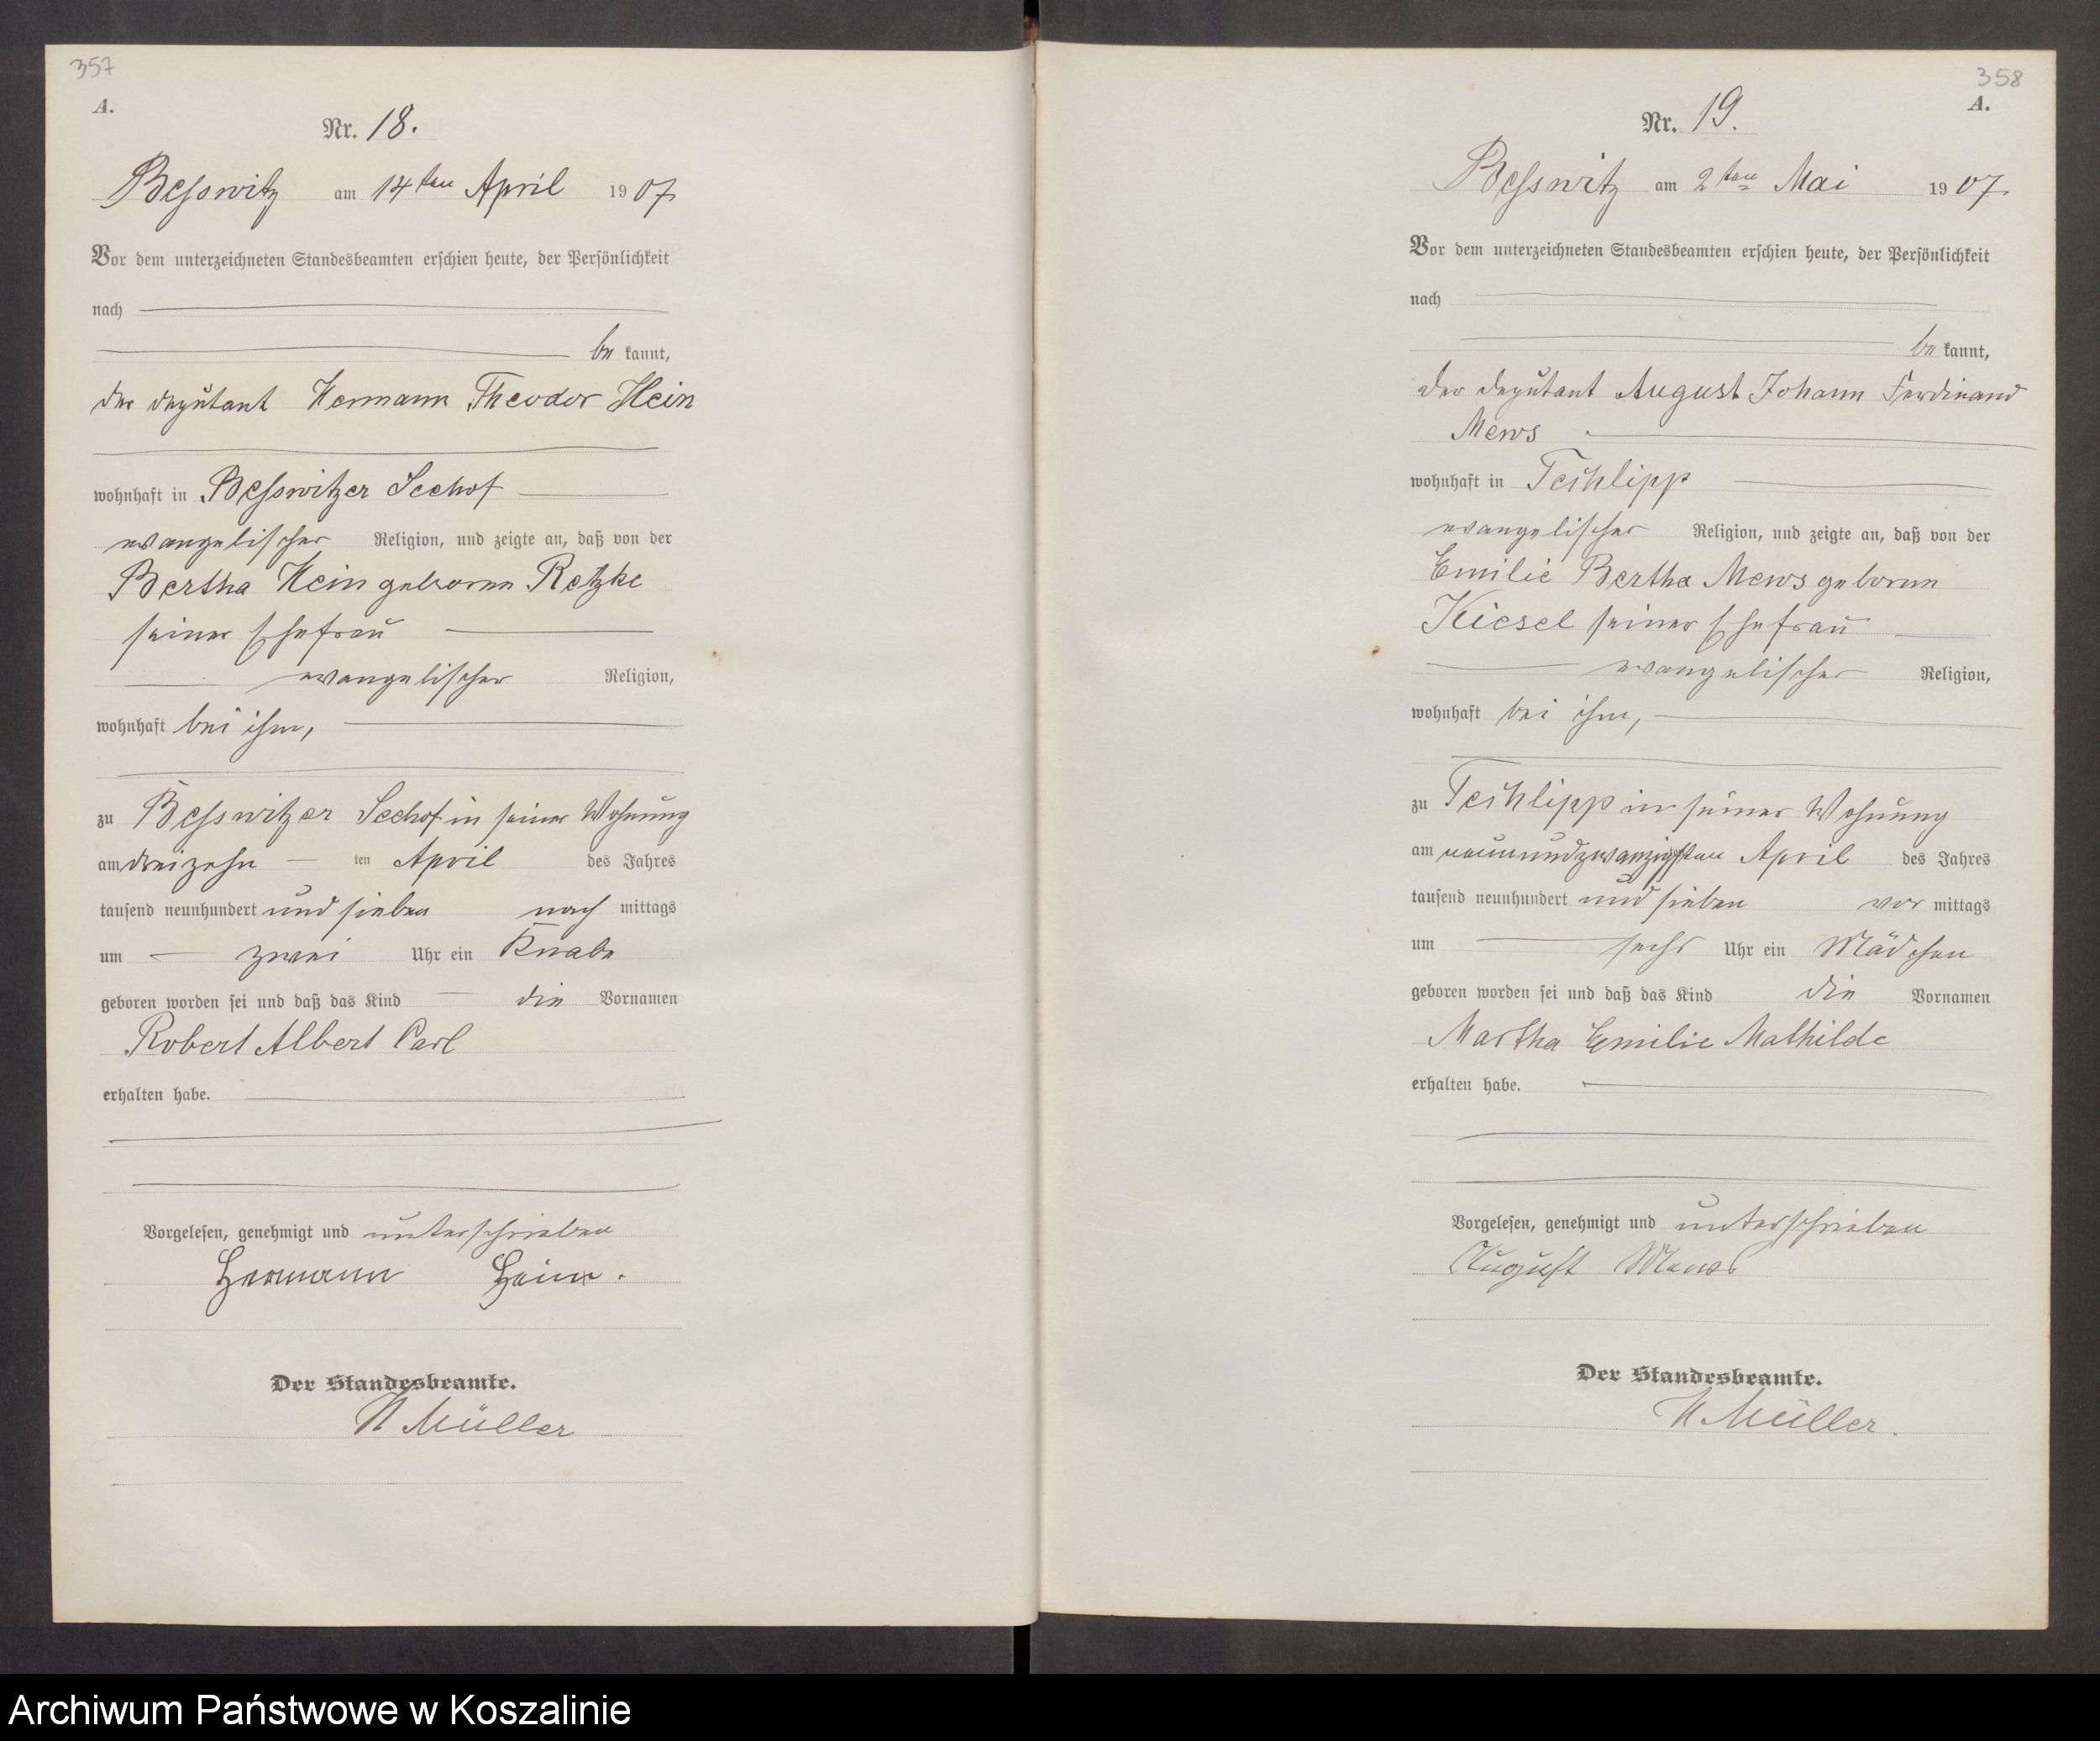 357
A.
Nr. 18.
Besswitz am 14ten April 1907
Vor dem unterzeichneten Standesbeamten erschien heute, der Persönlichkeit
nach
be kannt,
der Deputant Hermann Theodor Hein
wohnhaft in Besswitzer Seehof
evangelischer Religion, und zeigte an, daß von der
Bertha Hein geborene Retzke
seiner Ehefrau
evangelischer Religion,
wohnhaft bei ihm,
zu Besswitzer Seehof in seiner Wohnung
am dreizehn ten April des Jahres
tausend neunhundert und sieben nach mittags
um zwei Uhr ein Knabe
geboren worden sei und daß das Kind die Vornamen
Robert Albert Carl
erhalten habe.
Vorgelesen, genehmigt und unterschrieben
Hermann Hein.
Der Standesbeamte.
H Müller
358
A.
Nr. 19.
Besswitz am 2ten Mai 1907
Vor dem unterzeichneten Standesbeamten erschien heute, der Persönlichkeit
nach
be kannt,
der Deputant August Johann Ferdinand
Mews
wohnhaft in Techlipp
evangelischer Religion, und zeigte an, daß von der
Emilie Bertha Mews geborene
Kiesel seiner Ehefrau
evangelischer Religion,
wohnhaft bei ihm,
zu Techlipp in seiner Wohnung
am neunundzwanzigsten April des Jahres
tausend neunhundert und sieben vor mittags
um sechs Uhr ein Mädchen
geboren worden sei und daß das Kind die Vornamen
Martha Emilie Mathilde
erhalten habe.
Vorgelesen, genehmigt und unterschrieben
August Mews
Der Standesbeamte.
H Müller.
Archiwum Państwowe w Koszalinie